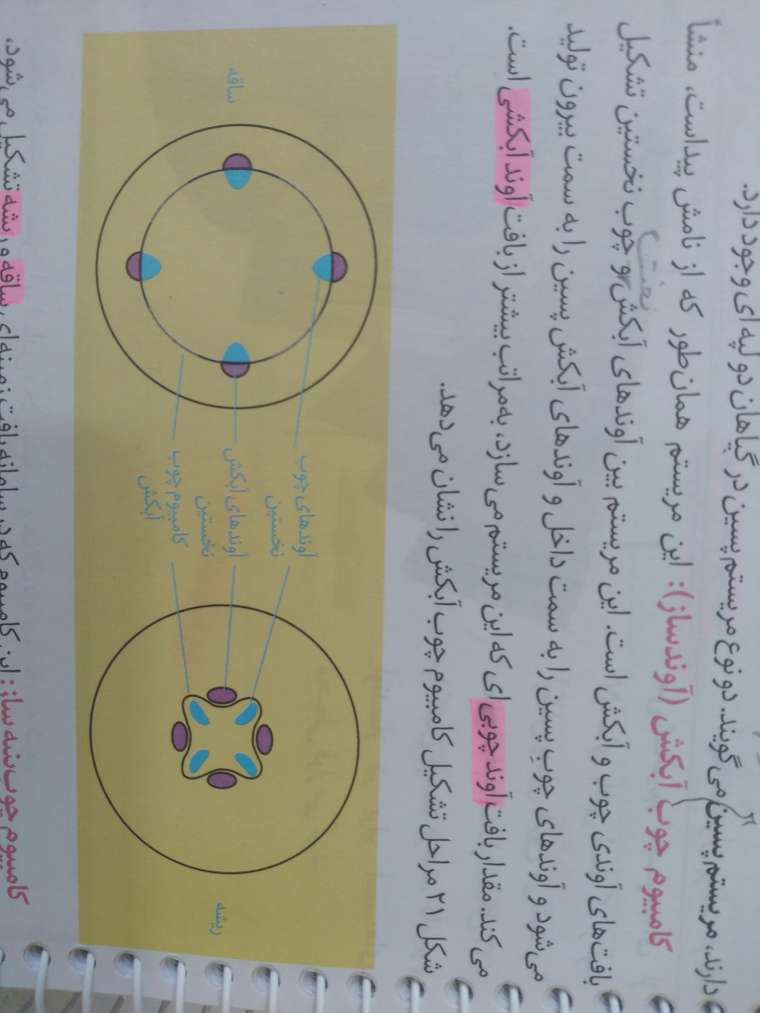 دارند، مریستم پسین می‌گویند. دو نوع مریستم پسین در گیاهان دو لپه ای وجود دارد.
کامبیوم چوب آبکش (آوندساز): این مریستم همان‌طور که از نامش پیداست، منشأ
بافت‌های آوندی چوب و آبکش است. این مریستم بین آوندهای آبکش و چوب نخستین تشکیل
می‌شود و آوندهای چوبِ پسین را به سمت داخل و آوندهای آبکش پسین را به سمت بیرون تولید
می‌کند. مقدار بافت آوند چوبی ای که این مریستم می‌سازد، به‌مراتب بیشتر از بافت آوند آبکشی است.
شکل ۲۱ مراحل تشکیل کامبیوم چوب آبکش را نشان می‌دهد.
ساقه
آوندهای چوب
نخستین
آوندهای آبکش
نخستین
کامبیوم چوب
آبکش
ریشه
کامبیوم چوب‌پنبه ساز: این کامبیوم که در سامانه بافت زمینه‌ای ساقه و ریشه تشکیل می‌شود،